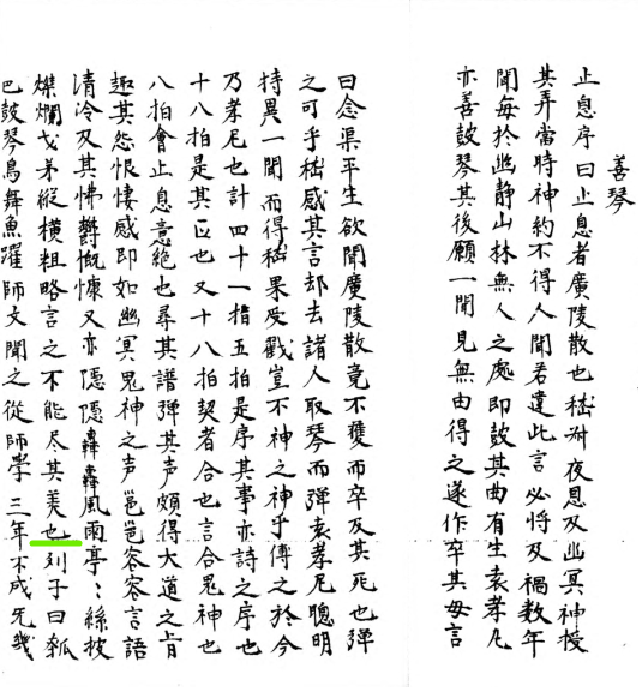 善琴
止息序曰止息者廣陵散也嵇叔夜思及幽冥神授
其弄當時神約不得人聞若違此言必將及禍數年
聞每於幽静山林無人之處即鼓其曲有生袁孝凡
亦善鼓琴其後願一聞見無由得之遂作卒其母言
曰念渠平生欲聞廣陵散竟不獲而卒及其死也弹
之可乎嵇感其言却去諸人取琴而弹袁孝尼聰明
持異一聞而得嵇果受戮豈不神之神乎傳之於今
乃孝尼也計四十一拍五拍是序其事亦詩之序也
十八拍是其正也又十八拍契者合也言合鬼神也
八拍會止息意絶也尋其譜弹其声頗得大道之旨
趣其怨恨悽感即如幽冥鬼神之声邕邕容容言語
清泠及其怫鬱慨慷又亦隱隱轟轟風雨亭〻絲披
燦爛戈矛縱横粗略言之不能尽其美也列子曰瓠
巴鼓琴鳥舞魚躍師文聞之從師學三年不成旡幾